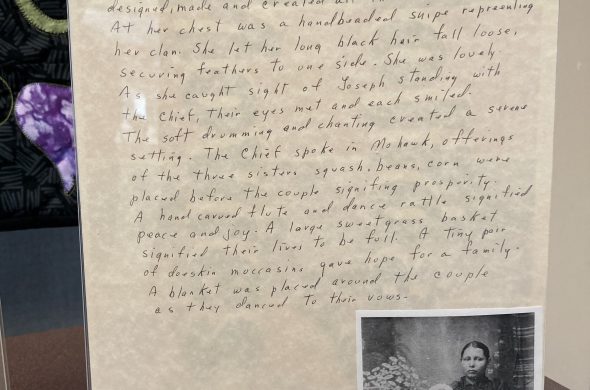 designed, made and created all
At her chest was a handbeaded snipe represnting
her clan. She let her long black heir fall loose,
securing feathers to one side. She was lovely.
As she caught sight of Joseph standing with
the Chief, their eyes met and each smiled.
The soft drumming and chanting created a serene
setting. The Chief spoke in Mohawk, offerings
of the three sisters squash, beans, corn were
placed before the couple signifing prosperity.
A hand carved flute and dance rattle signified
peace and joy. A large sweetgrass basket
signified their lives to be full. A tiny pair
of doeskin moccasins gave hope for a family.
A blanket was placed around the couple
as they danced to their vows.